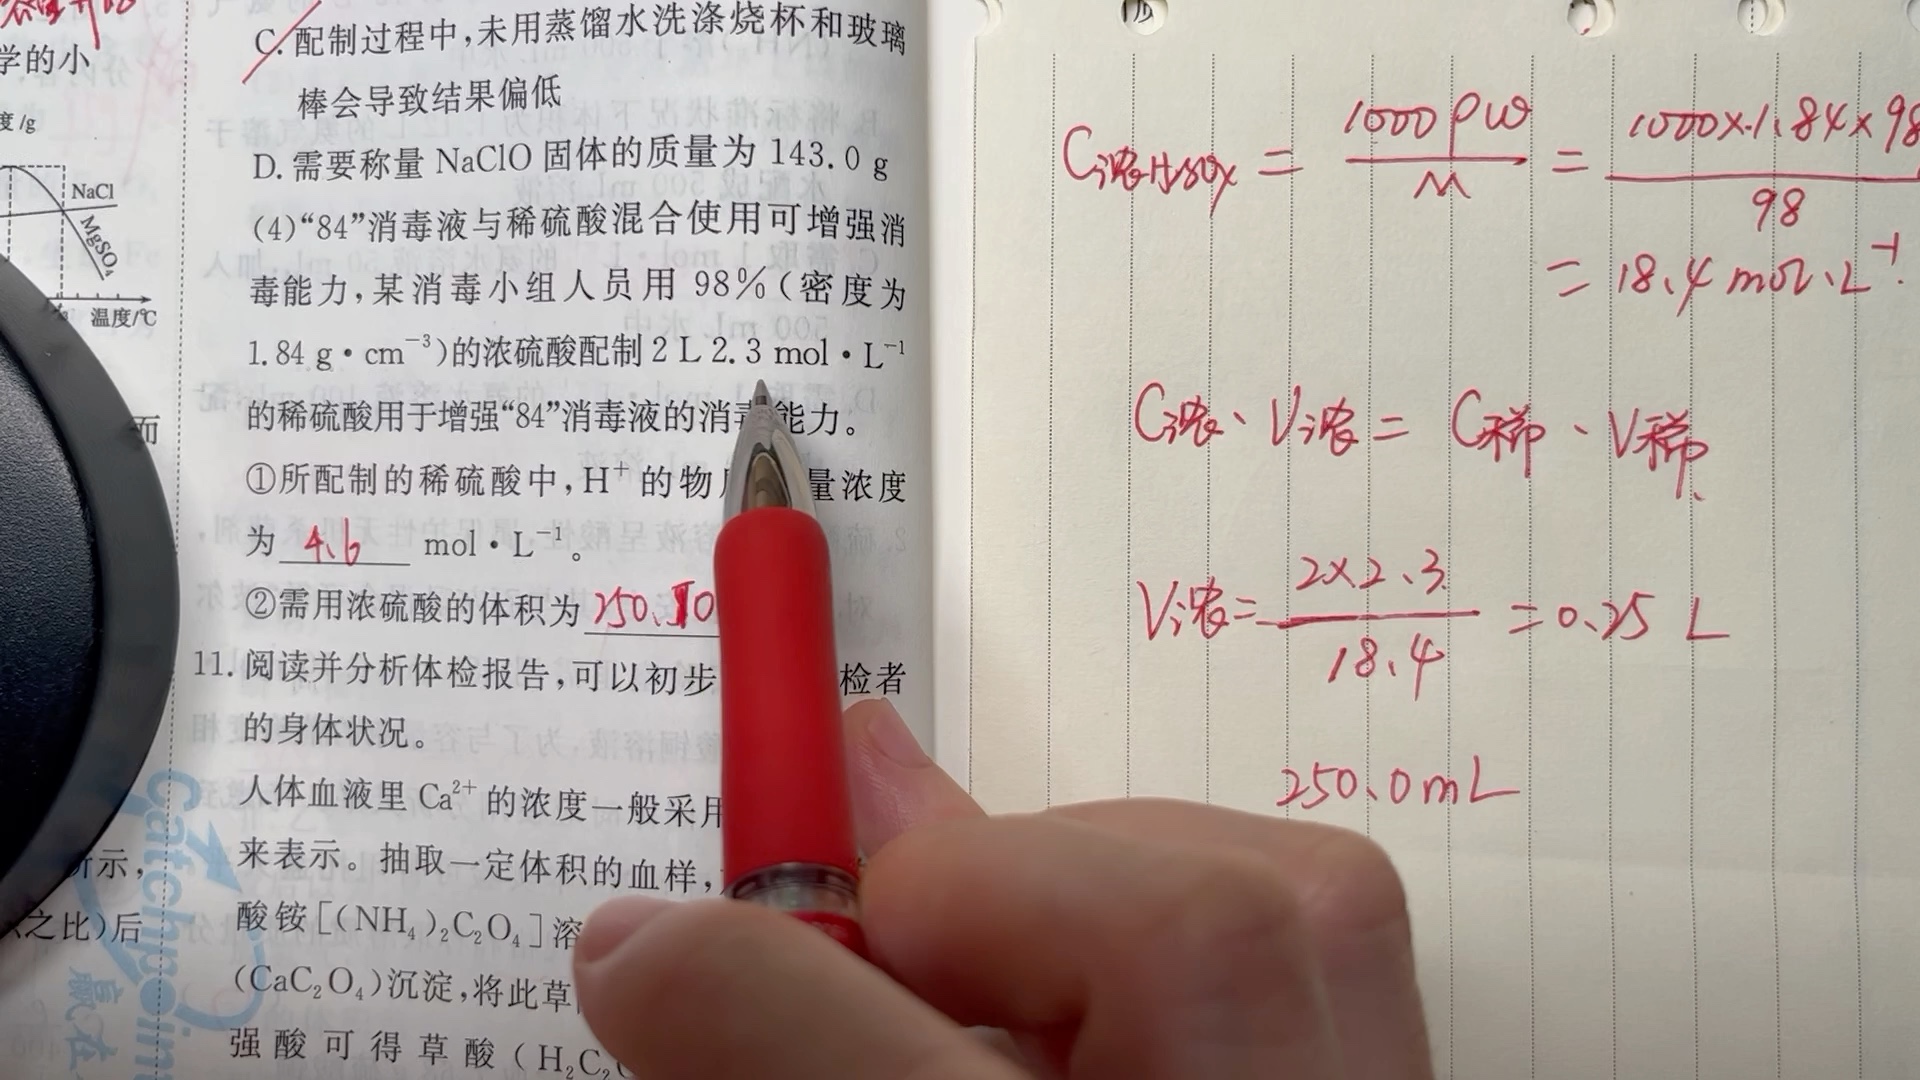 学的小
度/g
NaCl
MgSO₄
温度/℃
而
所示,
之比)后
C. 配制过程中,未用蒸馏水洗涤烧杯和玻璃
棒会导致结果偏低
D. 需要称量 NaClO 固体的质量为 143.0 g
(4)“84”消毒液与稀硫酸混合使用可增强消
毒能力,某消毒小组人员用 98%(密度为
1.84 g·cm⁻³)的浓硫酸配制 2 L 2.3 mol·L⁻¹
的稀硫酸用于增强“84”消毒液的消毒能力。
①所配制的稀硫酸中,H⁺ 的物 量浓度
为 4.6 mol·L⁻¹。
②需用浓硫酸的体积为 250.
11. 阅读并分析体检报告,可以初步 检者
的身体状况。
人体血液里 Ca²⁺ 的浓度一般采用
来表示。抽取一定体积的血样,
酸铵[(NH₄)₂C₂O₄]溶
(CaC₂O₄)沉淀,将此草
强酸可得草酸(H₂C₂
Catchpoint
赢在
C浓H₂SO₄ = 1000ρω/M = 1000×1.84×98/98
= 18.4 mol·L⁻¹.
C浓·V浓 = C稀·V稀
V浓 = 2×2.3/18.4 = 0.25 L
250.0mL